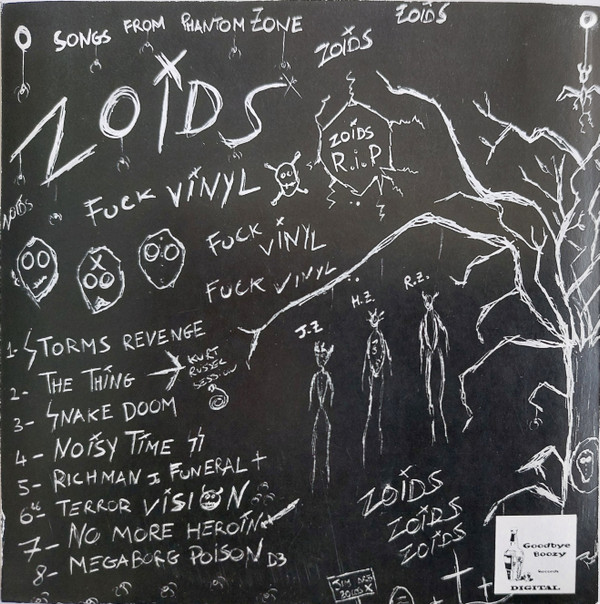 SONGS FROM PHANTOM ZONE
ZOiDS
ZOiDS
ZOiDS
ZOiDS
R.i.P
FUCK ViNYL
ZOiDS
FUCK ViNYL
FUCK ViNYL
J.Z
H.Z.
R.Z.
1- STORMS REVENGE
2- THE THiNG
KURT
RUSSEL
SESSION
3- SNAKE DOOM
4- NOiSY TiME
5- RICHMAN FUNERAL
6- TERROR ViSiON
7- NO MORE HEROiN
8- MEGABORG POISON D3
ZOiDS
ZOiDS
ZOiDS
Goodbye
Boozy
Records
DIGITAL